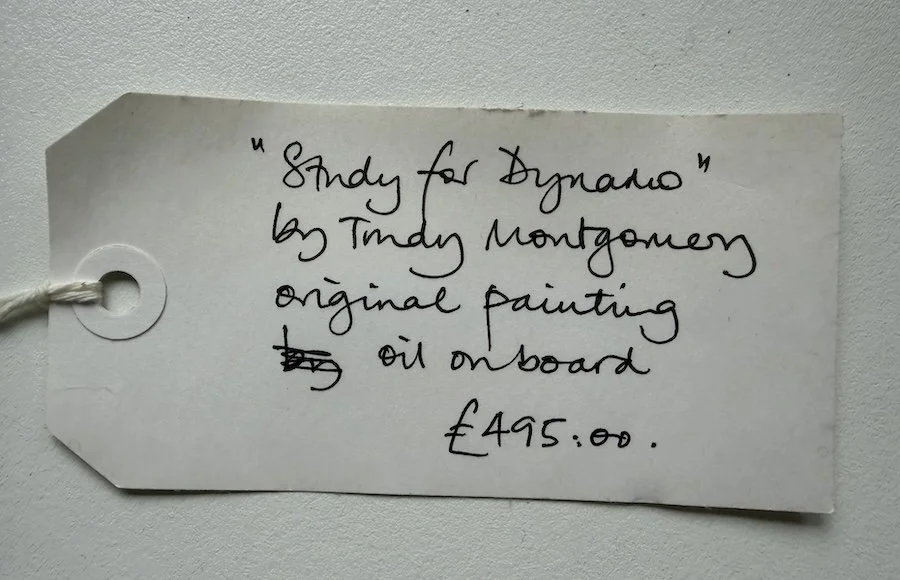 "Study for Dynamo"
by Trudy Montgomery
original painting
by oil on board
£495:00.